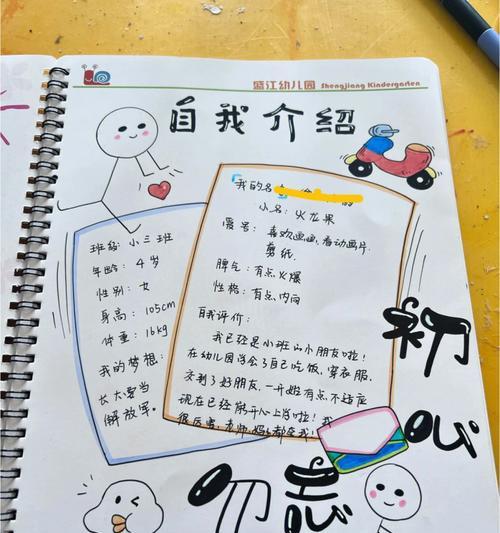 盛江幼儿园 Shengjiang Kindergarten
自我介绍
班级：小三班
年龄：4岁
性别：女
身高：105cm
体重：16kg
我的梦想：
长大要当
解放军。
我的名
小名：火龙果
爱号：喜欢画画，看动画片，
剪纸.
脾气：有点火爆
性格：有点内向
自我评价：
我已经是小班的小朋友啦！
在幼儿园学会了自己吃饭，穿衣服，
交到了好朋友，一开始有点不适应
现在已经能开心上学啦！我
很厉害，老师，妈妈都在我！
初
心
勿忘